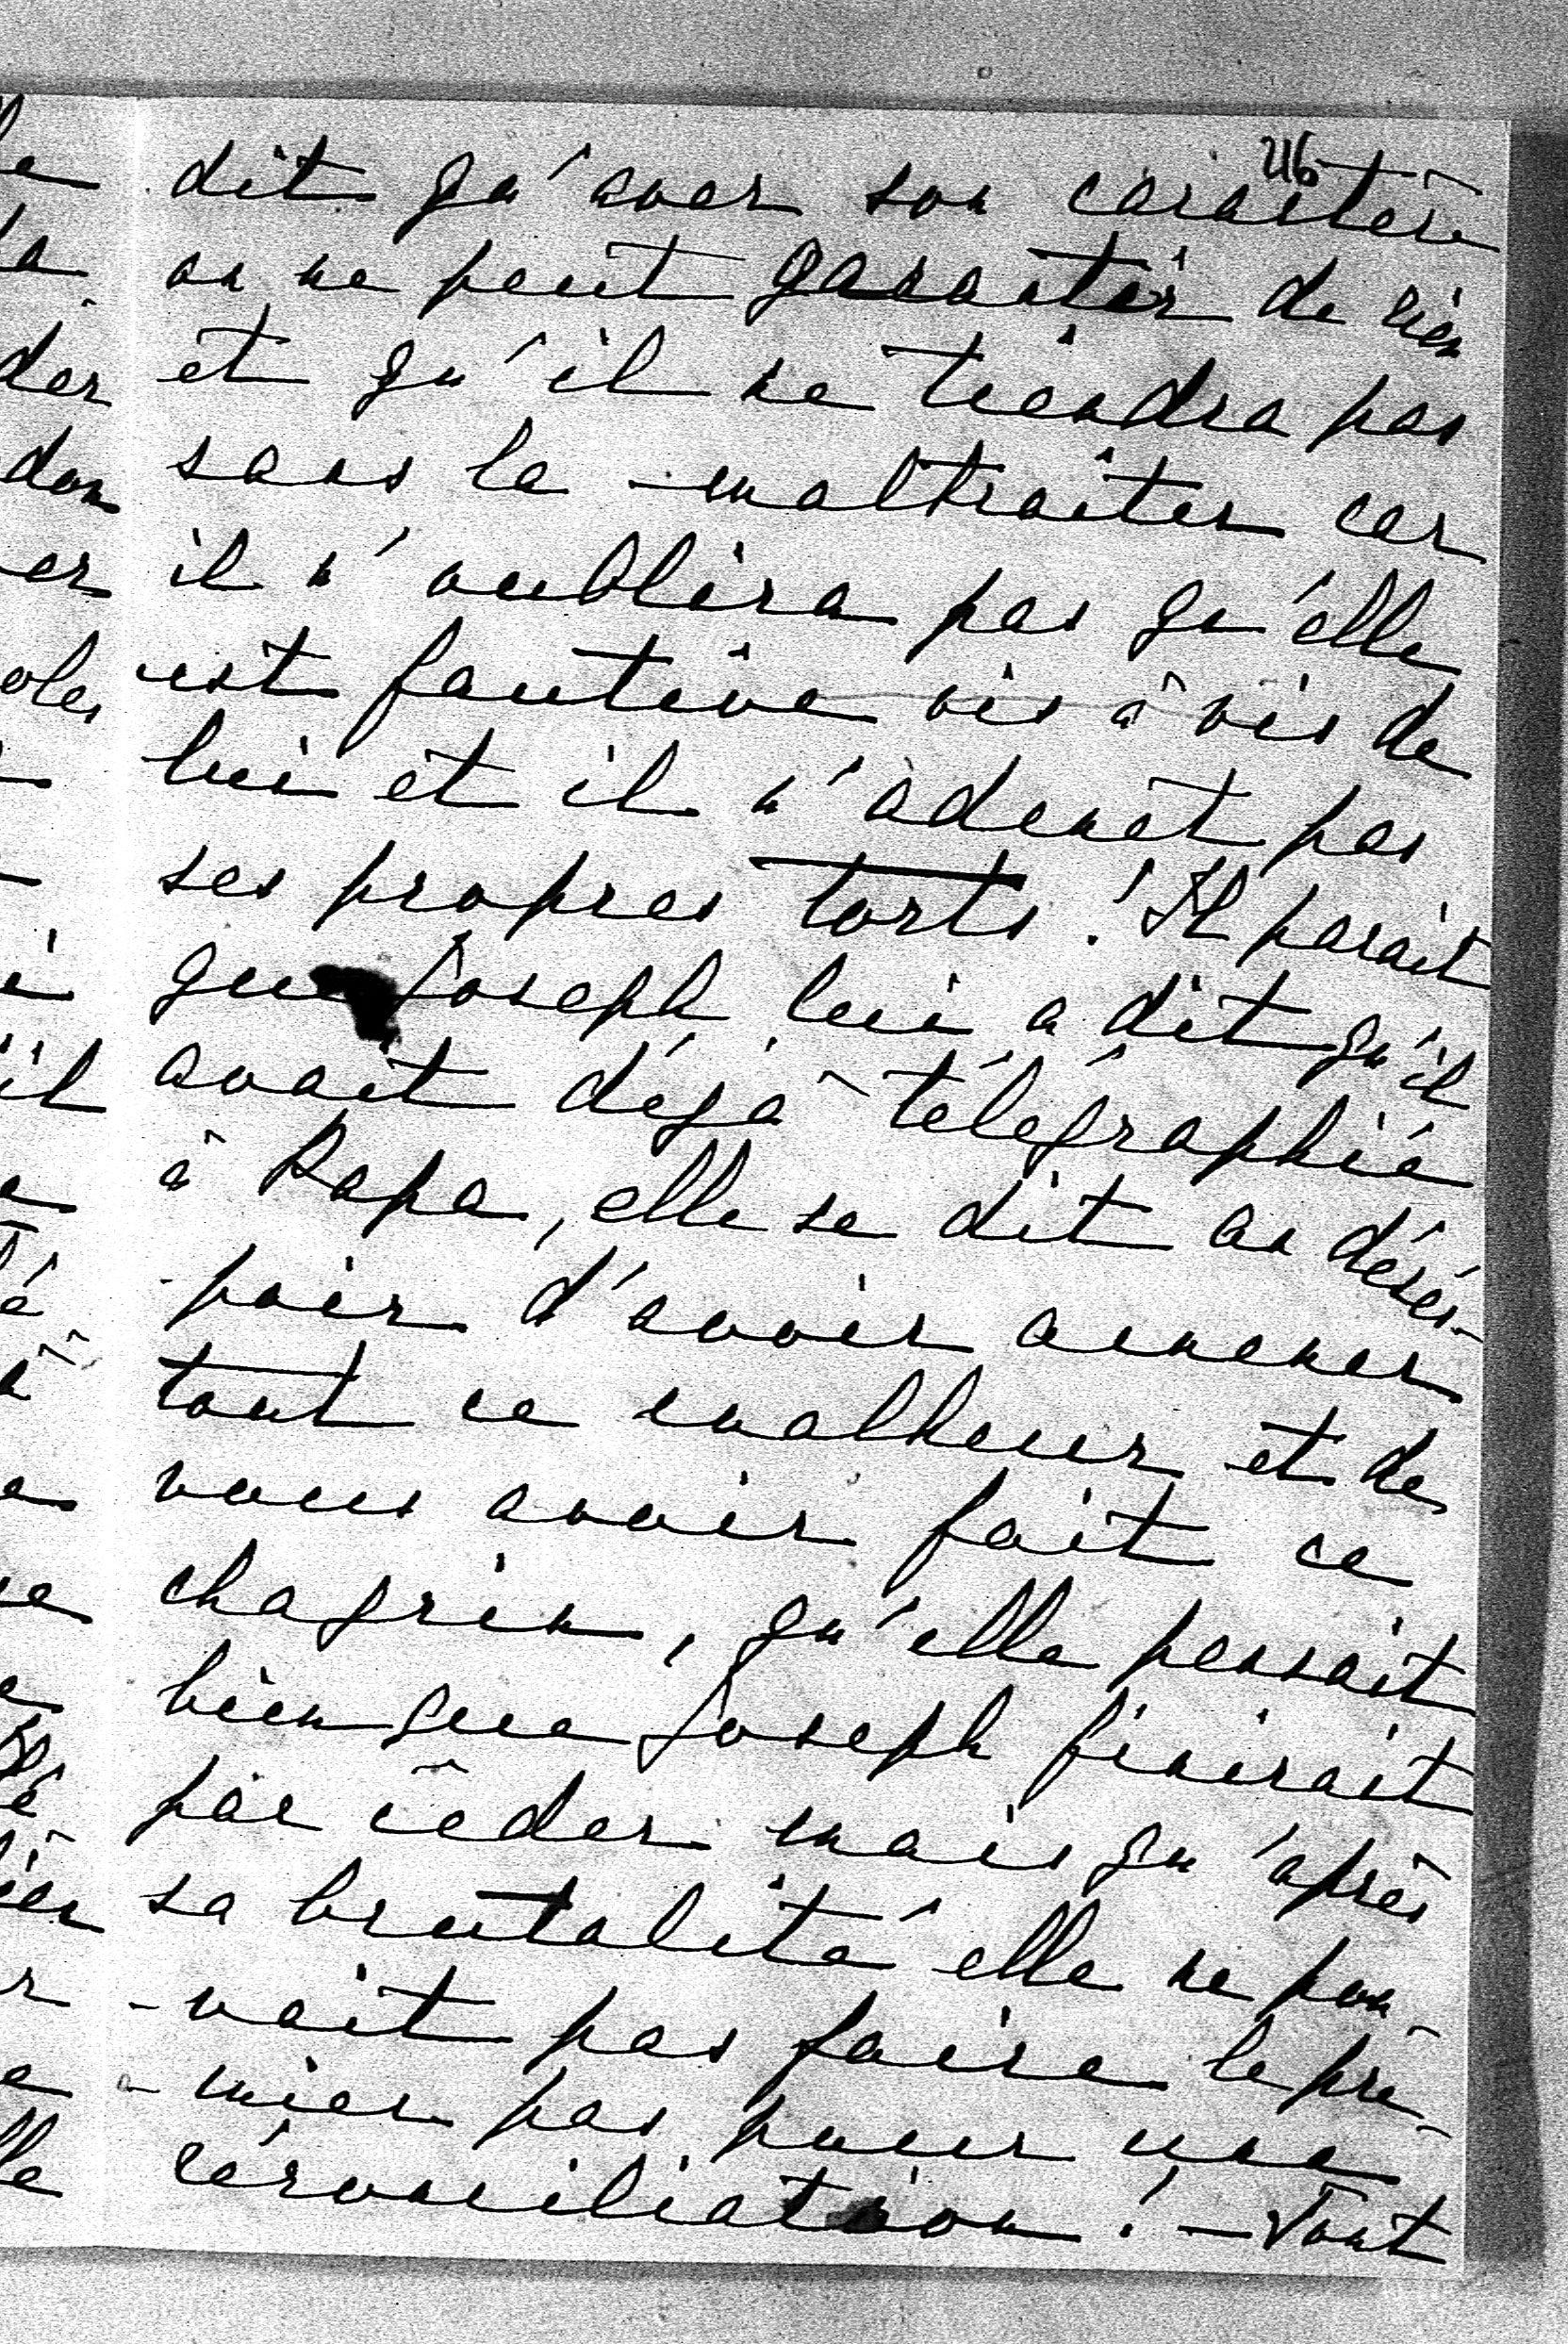 216
dit qu'avec son caractère
on ne peut garantir de rien
et qu'il ne tiendra pas
sans la maltraiter car
il n'oublira pas qu'elle
est fautive vis à vis de
lui et il n'admet pas
ses propres torts! Il parait
que Joseph lui a dit qu'il
avait déjà télégraphié
à Papa, elle se dit au déses-
-poir d'avoir amener
tout ce malheur et de
vous avoir fait ce
chagrin, qu'elle pensait
bien que Joseph finirait
par cèder mais qu'après
sa brutalité elle ne pou-
-vait pas faire le pre-
-mier pas pour une
réconciliation! - Tout